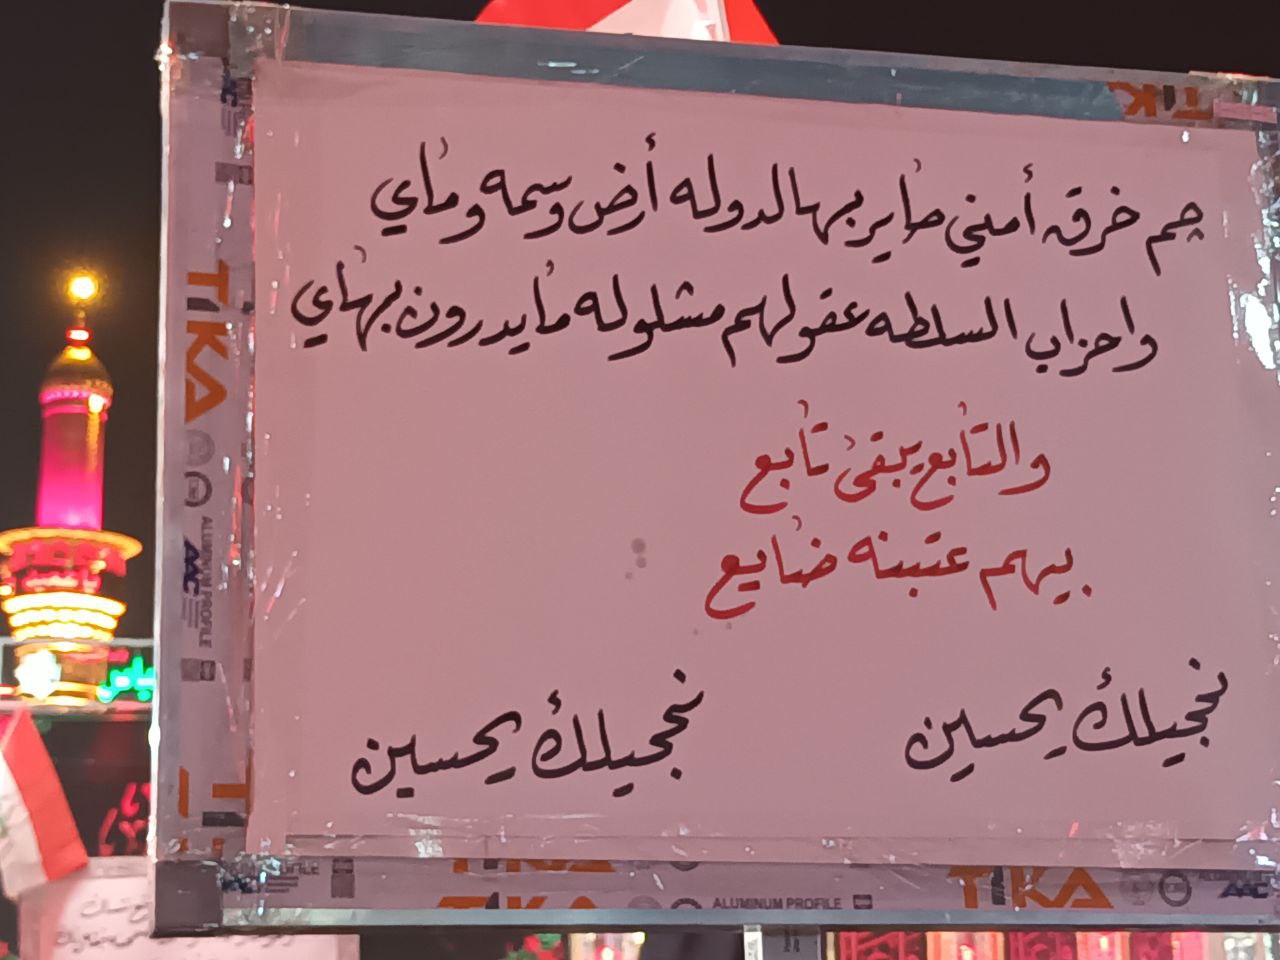 چم خرق أمني صاير بهالدوله أرض وسمه وماي
واحزاب السلطه عقولهم مشلوله مايدرون بهاي
والتابع يبقى تابع
بيهم عتبنه ضايع
نجيلك يحسين
نجيلك يحسين
TIKA
TIKA
AAC
ALUMINUM PROFILE
TIKA
TIKA
ALUMINUM PROFILE
AAC